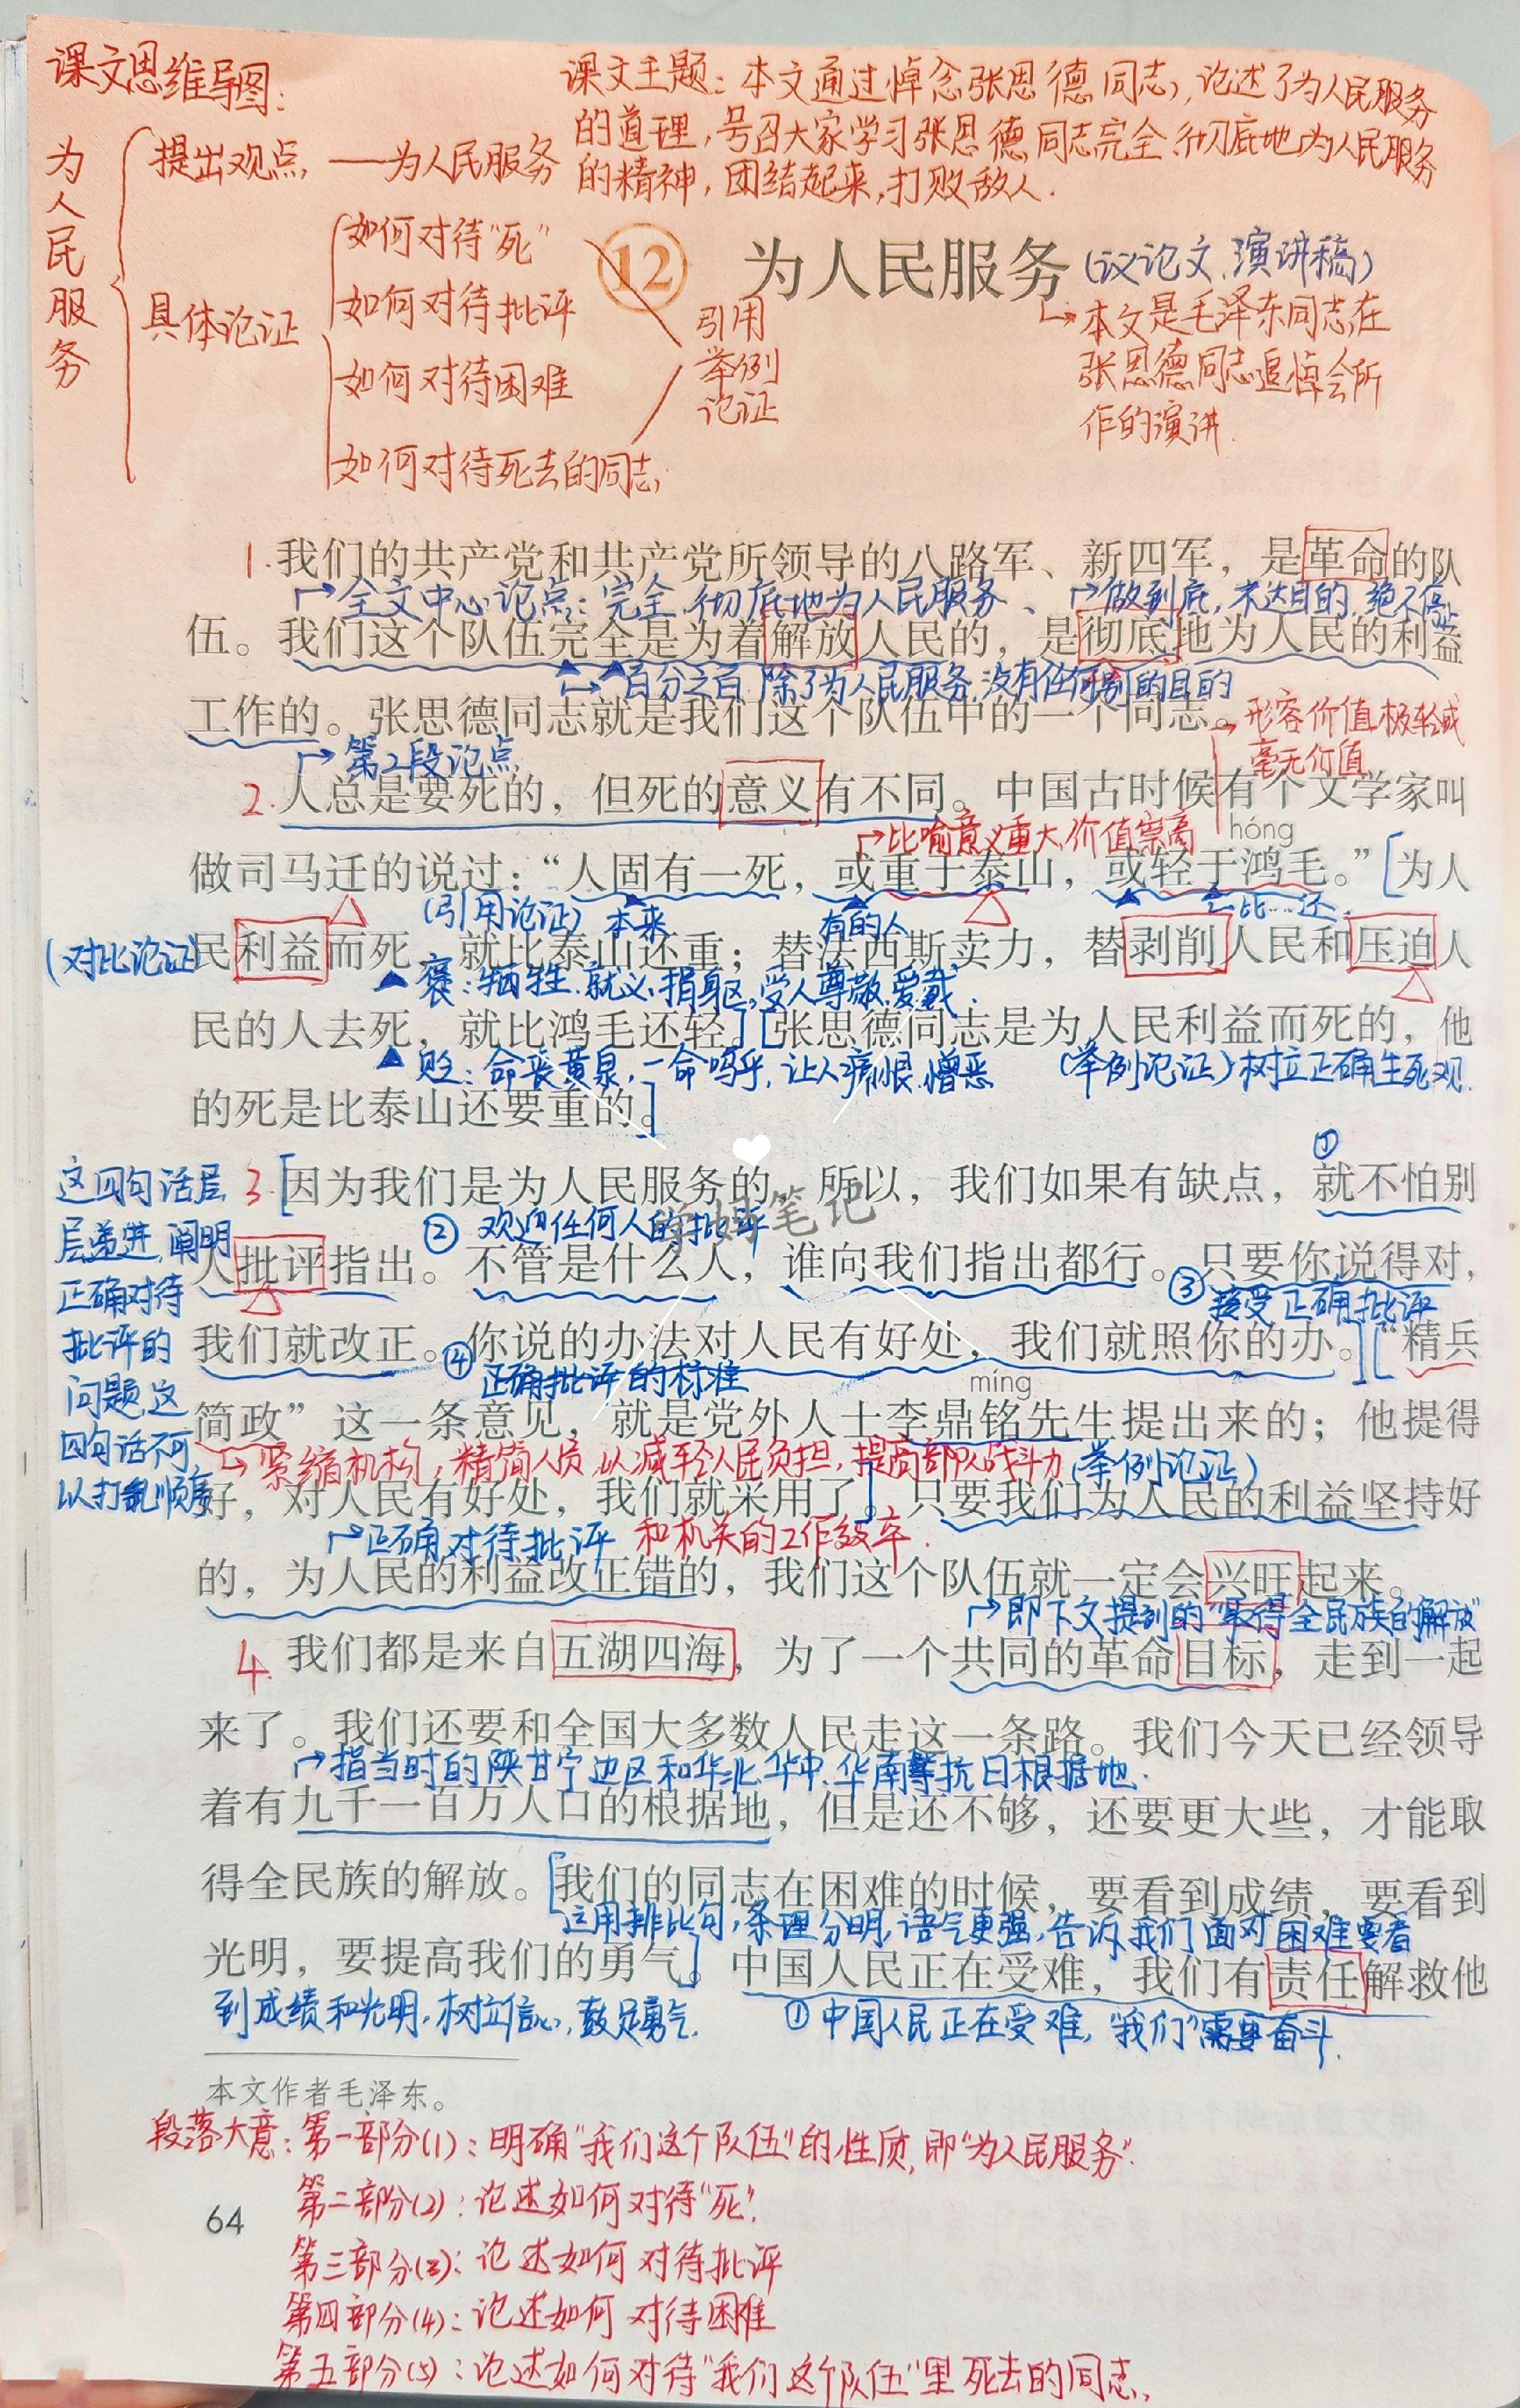 课文思维导图:
课文主题: 本文通过悼念张思德同志, 论述了为人民服务
的道理, 号召大家学习张思德同志完全、彻底地为人民服务
的精神, 团结起来, 打败敌人.
为人民服务
提出观点, ——为人民服务
具体论证
如何对待“死”
如何对待批评
如何对待困难
如何对待死去的同志
引用
举例
论证
12 为人民服务 (议论文、演讲稿)
本文是毛泽东同志在
张思德同志追悼会所
作的演讲.
1. 我们的共产党和共产党所领导的八路军、新四军，是革命的队
全文中心论点: 完全、彻底地为人民服务、 做到底, 未达目的, 绝不停止
伍。我们这个队伍完全是为着解放人民的，是彻底地为人民的利益
百分之百 除了为人民服务, 没有任何别的目的
工作的。张思德同志就是我们这个队伍中的一个同志。
形容价值极轻或
毫无价值
第2段论点
2. 人总是要死的，但死的意义有不同。中国古时候有个文学家叫
比喻意义重大, 价值崇高
hóng
做司马迁的说过：“人固有一死，或重于泰山，或轻于鸿毛。”[为人
(引用论证) 本来 有的人 比……还
(对比论证)
民利益而死，就比泰山还重；替法西斯卖力，替剥削人民和压迫人
褒: 牺牲、就义、捐躯, 受人尊敬、爱戴.
民的人去死，就比鸿毛还轻。][张思德同志是为人民利益而死的，他
贬: 命丧黄泉, 一命呜乎, 让人痛恨、憎恶 (举例论证) 树立正确生死观.
的死是比泰山还要重的。]
这四句话层
层递进, 阐明
正确对待
批评的
问题, 这
四句话不可
以打乱顺序
①
3. [因为我们是为人民服务的，所以，我们如果有缺点，就不怕别
学姐笔记
② 欢迎任何人的批评
人批评指出。不管是什么人，谁向我们指出都行。只要你说得对，
③ 接受正确批评
我们就改正。你说的办法对人民有好处，我们就照你的办。][“精兵
④ 正确批评的标准
míng
简政”这一条意见，就是党外人士李鼎铭先生提出来的；他提得
紧缩机构, 精简人员, 以减轻人民负担, 提高部队战斗力 (举例论证)
好，对人民有好处，我们就采用了。]只要我们为人民的利益坚持好
正确对待批评 和机关的工作效率.
的，为人民的利益改正错的，我们这个队伍就一定会兴旺起来。
即下文提到的“取得全民族的解放”
4. 我们都是来自五湖四海，为了一个共同的革命目标，走到一起
来了。我们还要和全国大多数人民走这一条路。我们今天已经领导
指当时的陕甘宁边区和华北、华中、华南等抗日根据地.
着有九千一百万人口的根据地，但是还不够，还要更大些，才能取
得全民族的解放。[我们的同志在困难的时候，要看到成绩，要看到
运用排比句, 条理分明, 语气更强, 告诉我们面对困难要看
光明，要提高我们的勇气。]中国人民正在受难，我们有责任解救他
到成绩和光明, 树立信心, 鼓足勇气.
①中国人民正在受难, “我们”需要奋斗.
本文作者毛泽东。
段落大意: 第一部分(1): 明确“我们这个队伍”的性质, 即“为人民服务”.
第二部分(2): 论述如何对待“死”.
64
第三部分(3): 论述如何对待批评
第四部分(4): 论述如何对待困难
第五部分(5): 论述如何对待“我们这个队伍”里死去的同志.